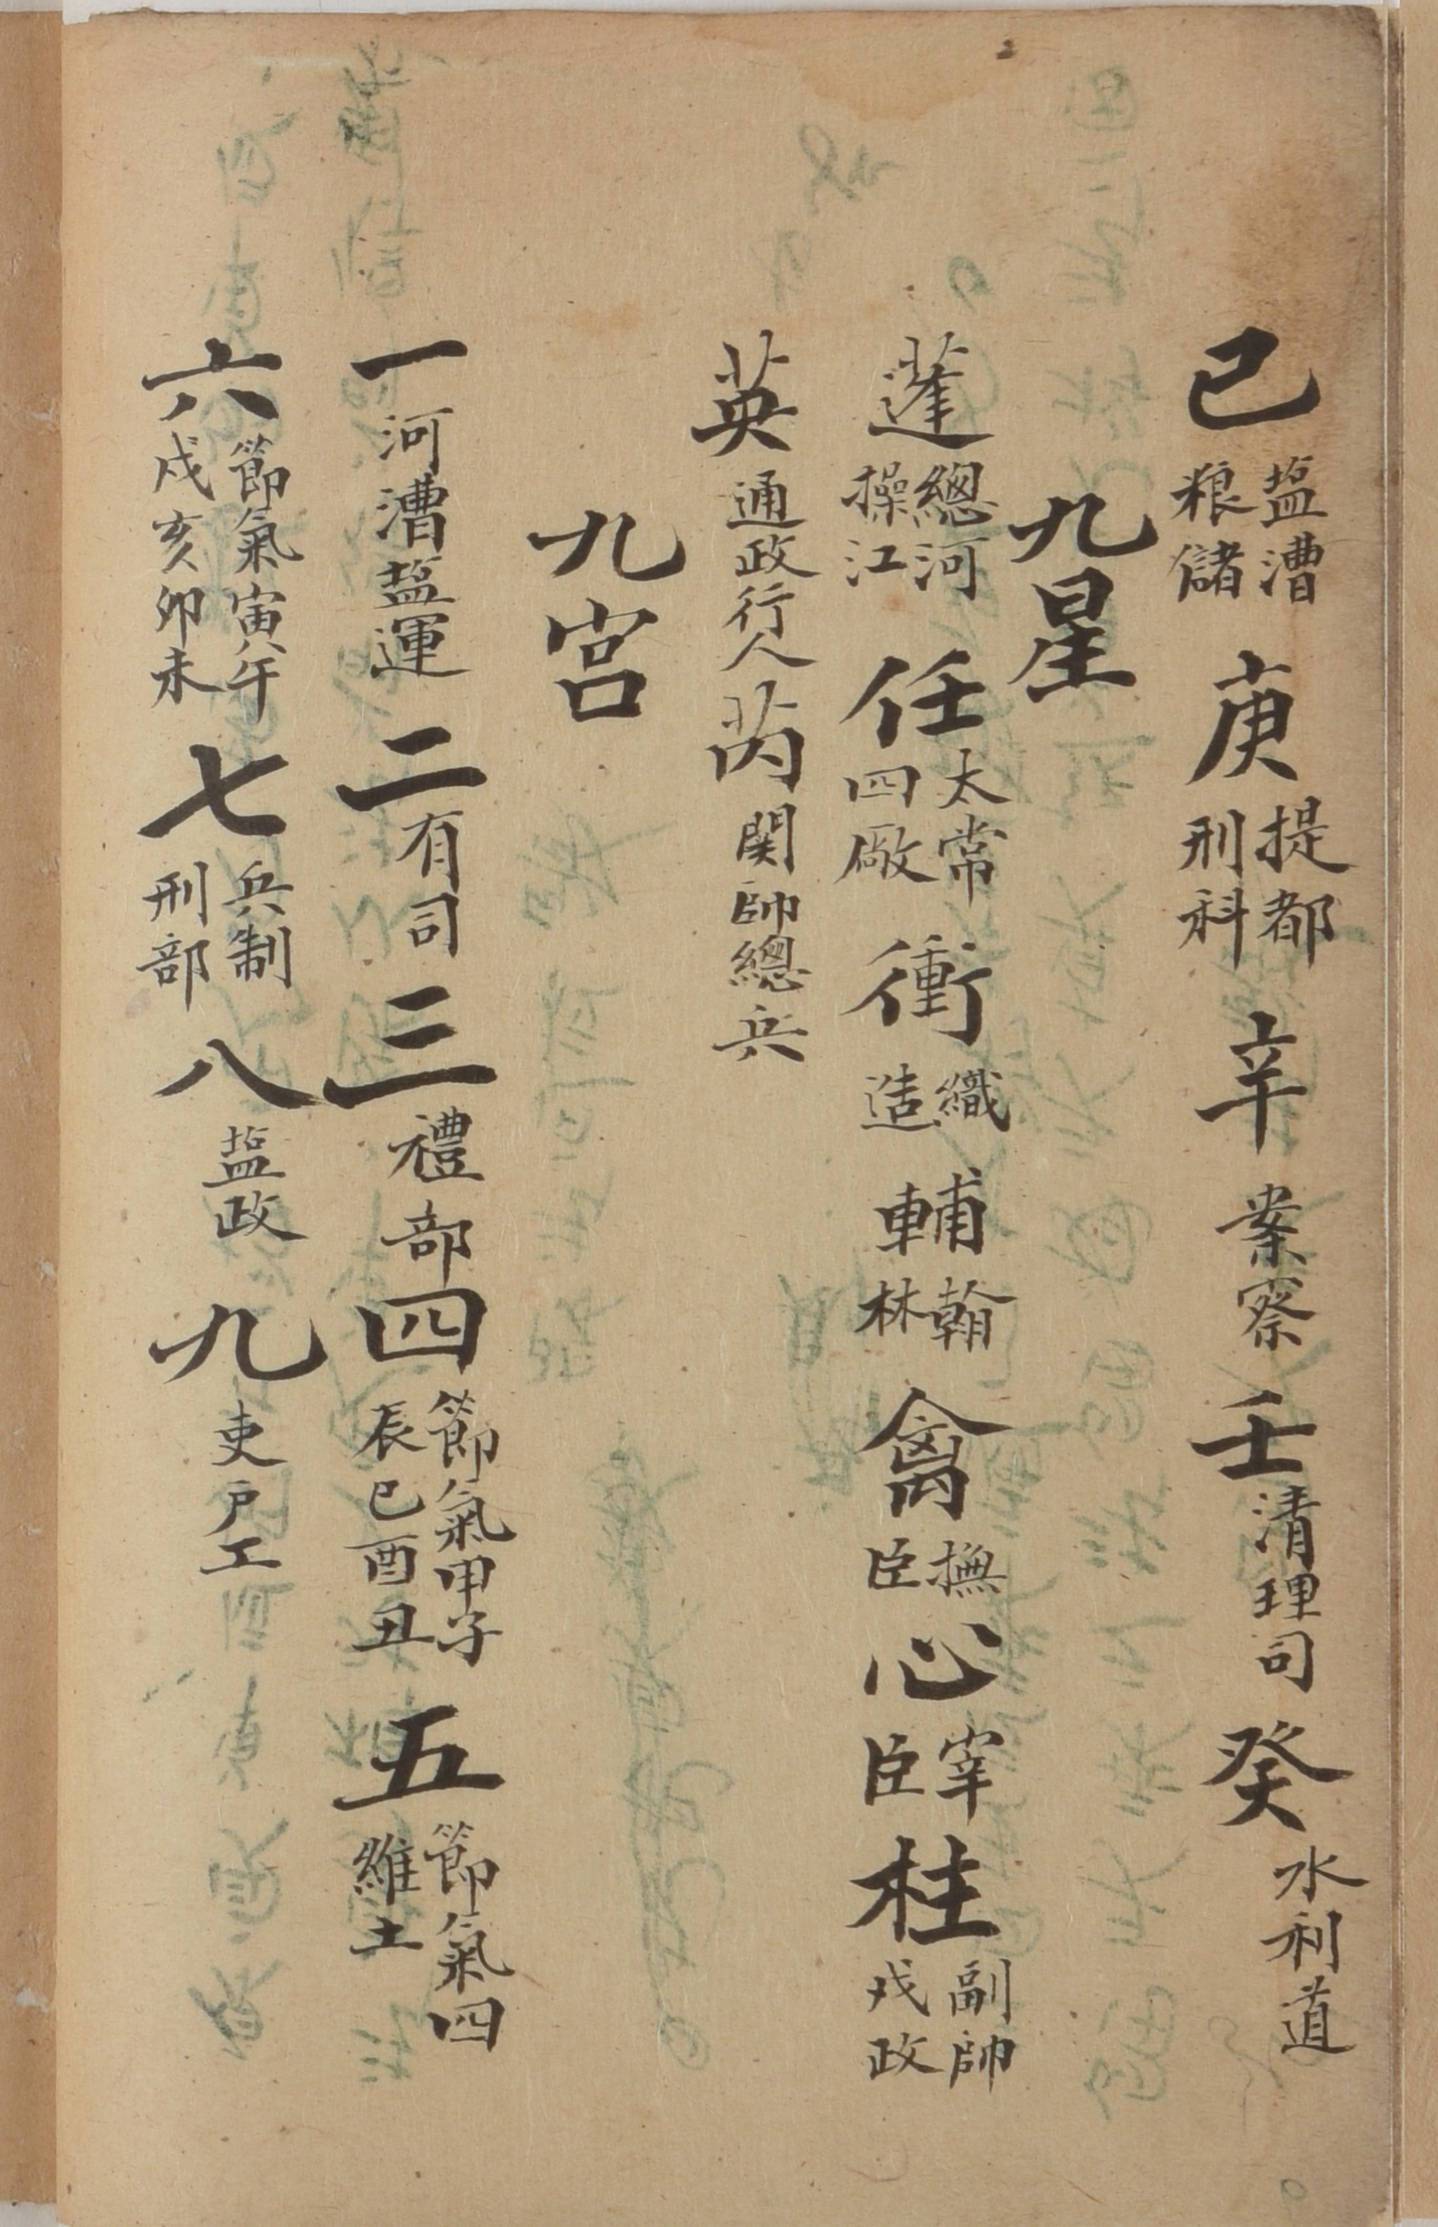 己盐漕粮儲庚提都刑科辛案察壬清理司癸水利道
九星
蓬總河操江任太常四厰衝織造輔翰林禽撫臣心宰臣柱副帥戎政
英通政行人芮関帥總兵
九宫
一河漕盐運二有司三禮部四節氣甲子辰巳酉丑五節氣四維土
六節氣寅午戌亥卯未七兵制刑部八盐政九吏户工